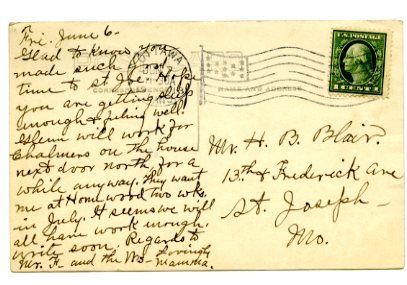 Fri. June 6-
Glad to know you
made such good
time to St Joe. Hope
you are getting sleep
enough & feeling well.
Glenn will work for
Chalmers on the house
next door north for a
while anyway. They want
me at Homewood two wks.
in July. It seems we will
all have work enough.
Write soon. Regards to
Mr. Fr and the
Lovingly
Mamma.
OTTAWA
JUN
NAME AND ADDRESS
U.S. POSTAGE
1 CENT 1
Mr. H. B. Blair.
13th & Frederick Ave
St. Joseph-
Mo.